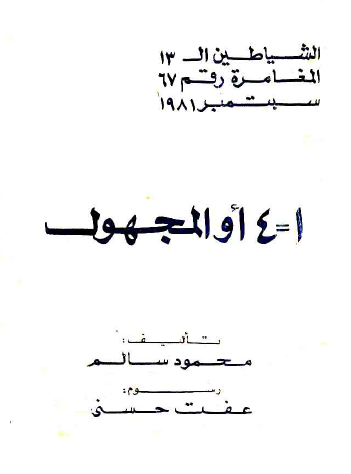 الشياطين الـ ١٣
المغامرة رقم ٦٧
سبتمبر ١٩٨١
١ = ٤ أو المجهول
تأليف:
محمود سالم
رسوم:
عفت حسنى